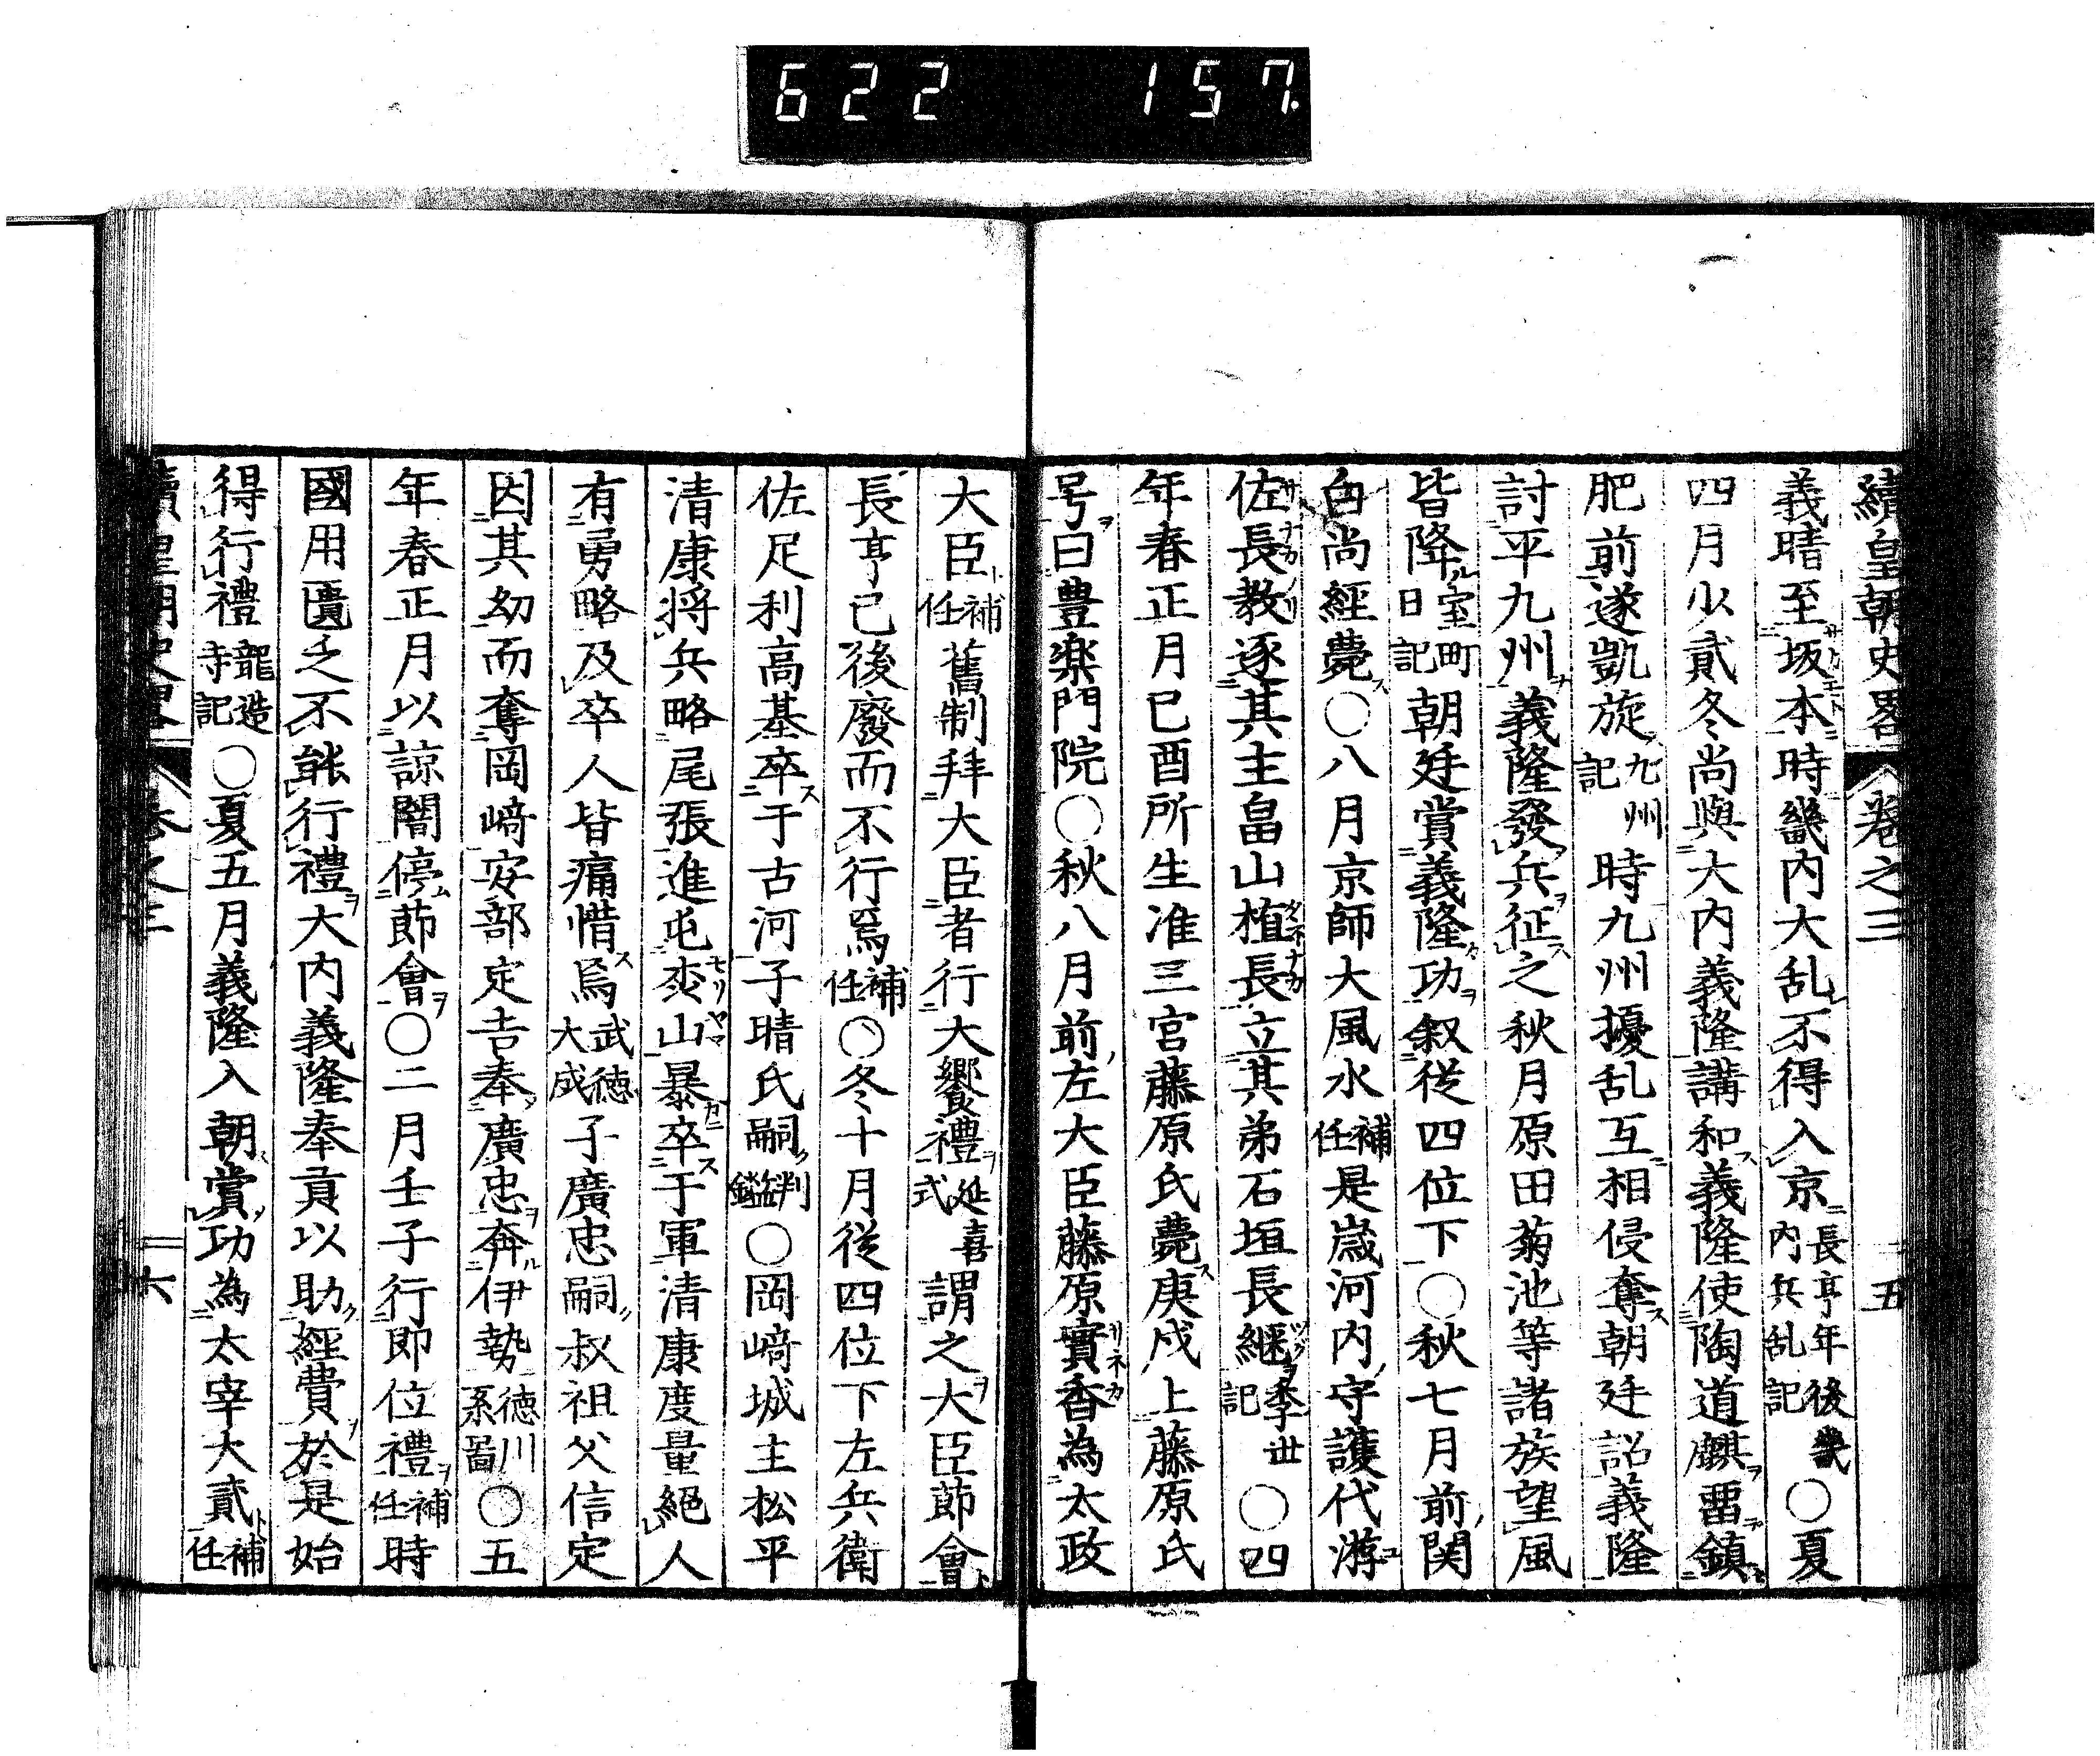 622 157.
續皇朝史畧 卷之三 五
義晴至坂本時畿内大乱不得入京長亨年後畿内兵乱記○夏
四月少貳冬尚與大内義隆講和義隆使陶道麒畱鎮
肥前遂凱旋九州記時九州擾乱互相侵奪朝廷詔義隆
討平九州義隆發兵征之秋月原田菊池等諸族望風
皆降室町日記朝廷賞義隆功叙從四位下○秋七月前関
白尚經薨○八月京師大風水補任是歳河内守護代游
佐長教逐其主畠山植長立其弟石垣長継季世記○四
年春正月已酉所生准三宮藤原氏薨庚戍上藤原氏
号曰豊楽門院○秋八月前左大臣藤原實香為太政
大臣補任舊制拜大臣者行大饗禮延喜式謂之大臣節會
長亨已後廢而不行焉補任○冬十月從四位下左兵衛
佐足利高基卒于古河子晴氏嗣判鑑○岡﨑城主松平
清康将兵略尾張進屯森山暴卒于軍清康度量絕人
有勇略及卒人皆痛惜焉武徳大成子廣忠嗣叔祖父信定
因其幼而奪岡﨑安部定吉奉廣忠奔伊勢徳川系圖○五
年春正月以諒闇停節會○二月壬子行即位禮補任時
國用匱乏不能行禮大内義隆奉貢以助經費於是始
得行禮龍造寺記○夏五月義隆入朝賞功為太宰大貳補任
續皇朝史畧 卷之三 六